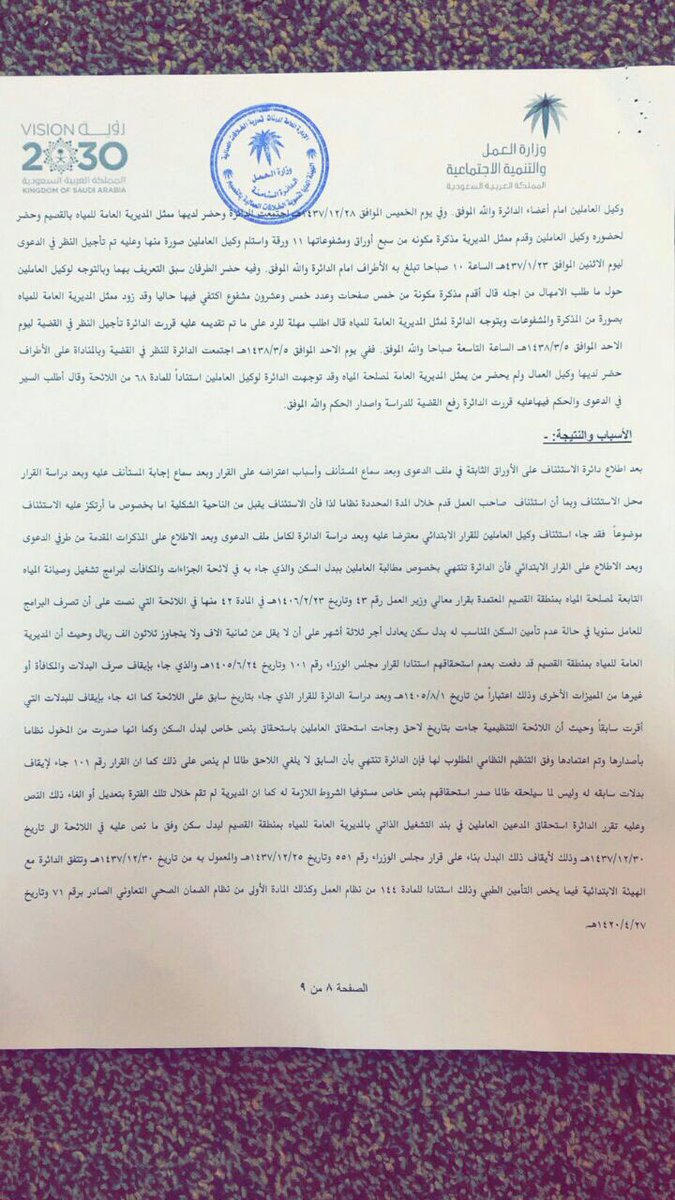 VISION رؤيـــة
2030
المملكة العربية السعودية
KINGDOM OF SAUDI ARABIA
وزارة العمل
والتنمية الاجتماعية
المملكة العربية السعودية
وزارة العمل
وكيل العاملين امام أعضاء الدائرة والله الموفق. وفي يوم الخميس الموافق ١٤٣٧/١٢/٢٨هـ اجتمعت الدائرة وحضر لديها ممثل المديرية العامة للمياه بالقصيم وحضر
لحضوره وكيل العاملين وقدم ممثل المديرية مذكرة مكونه من سبع أوراق ومشفوعاتها ١١ ورقة واستلم وكيل العاملين صورة منها وعليه تم تأجيل النظر في الدعوى
ليوم الاثنين الموافق ٤٣٧/١/٢٣هـ الساعة ١٠ صباحا تبلغ به الأطراف امام الدائرة والله الموفق. وفيه حضر الطرفان سبق التعريف بهما وبالتوجه لوكيل العاملين
حول ما طلب الامهال من اجله قال أقدم مذكرة مكونة من خمس صفحات وعدد خمس وعشرون مشفوع اكتفي فيها حاليا وقد زود ممثل المديرية العامة للمياه
بصورة من المذكرة والمشفوعات وبتوجه الدائرة لمثل المديرية العامة للمياه قال اطلب مهلة للرد على ما تم تقديمه عليه قررت الدائرة تأجيل النظر في القضية ليوم
الاحد الموافق ١٤٣٨/٣/٥هـ الساعة التاسعة صباحا والله الموفق. ففي يوم الاحد الموافق ١٤٣٨/٣/٥هـ اجتمعت الدائرة للنظر في القضية وبالمناداة على الأطراف
حضر لديها وكيل العمال ولم يحضر من يمثل المديرية العامة لمصلحة المياه وقد توجهت الدائرة لوكيل العاملين استناداً للمادة ٦٨ من اللائحة وقال أطلب السير
في الدعوى والحكم فيهاعليه قررت الدائرة رفع القضية للدراسة واصدار الحكم والله الموفق.
الأسباب والنتيجة: -
بعد اطلاع دائرة الاستئناف على الأوراق الثابتة في ملف الدعوى وبعد سماع المستأنف وأسباب اعتراضه على القرار وبعد سماع إجابة المستأنف عليه وبعد دراسة القرار
محل الاستئناف وبما أن استئناف صاحب العمل قدم خلال المدة المحددة نظاما لذا فأن الاستئناف يقبل من الناحية الشكلية اما بخصوص ما أرتكز عليه الاستئناف
موضوعاً فقد جاء استئناف وكيل العاملين للقرار الابتدائي معترضا عليه وبعد دراسة الدائرة لكامل ملف الدعوى وبعد الاطلاع على المذكرات المقدمة من طرفي الدعوى
وبعد الاطلاع على القرار الابتدائي فأن الدائرة تنتهي بخصوص مطالبة العاملين ببدل السكن والذي جاء به في لائحة الجزاءات والمكافأت لبرامج تشغيل وصيانة المياه
التابعة لمصلحة المياه بمنطقة القصيم المعتمدة بقرار معالي وزير العمل رقم ٤٣ وتاريخ ١٤٠٦/٢/٢٣هـ في المادة ٤٢ منها في اللائحة التي نصت على أن تصرف البرامج
للعامل سنويا في حالة عدم تأمين السكن المناسب له بدل سكن يعادل أجر ثلاثة أشهر على أن لا يقل عن ثمانية الاف ولا يتجاوز ثلاثون الف ريال وحيث أن المديرية
العامة للمياه بمنطقة القصيم قد دفعت بعدم استحقاقهم استنادا لقرار مجلس الوزراء رقم ١٠١ وتاريخ ١٤٠٥/٦/٢٤هـ والذي جاء بإيقاف صرف البدلات والمكافأة أو
غيرها من المميزات الأخرى وذلك اعتباراً من تاريخ ١٤٠٥/٨/١هـ وبعد دراسة الدائرة للقرار الذي جاء بتاريخ سابق على اللائحة كما انه جاء بإيقاف للبدلات التي
أقرت سابقاً وحيث أن اللائحة التنظيمية جاءت بتاريخ لاحق وجاءت استحقاق العاملين باستحقاق بنص خاص لبدل السكن وكما انها صدرت من المخول نظاما
بأصدارها وتم اعتمادها وفق التنظيم النظامي المطلوب لها فإن الدائرة تنتهي بأن السابق لا يلغي اللاحق طالما لم ينص على ذلك كما ان القرار رقم ١٠١ جاء لإيقاف
بدلات سابقه له وليس لما سيلحقه طالما صدر استحقاقهم بنص خاص مستوفيا الشروط اللازمة له كما ان المديرية لم تقم خلال تلك الفترة بتعديل أو الغاء ذلك النص
وعليه تقرر الدائرة استحقاق المدعين العاملين في بند التشغيل الذاتي بالمديرية العامة للمياه بمنطقة القصيم لبدل سكن وفق ما نص عليه في اللائحة الى تاريخ
١٤٣٧/١٢/٣٠هـ وذلك لأيقاف ذلك البدل بناء على قرار مجلس الوزراء رقم ٥٥١ وتاريخ ١٤٣٧/١٢/٢٥هـ والمعمول به من تاريخ ١٤٣٧/١٢/٣٠هـ وتتفق الدائرة مع
الهيئة الابتدائية فيما يخص التأمين الطبي وذلك استنادا للمادة ١٤٤ من نظام العمل وكذلك المادة الأولى من نظام الضمان الصحي التعاوني الصادر برقم ٧١ وتاريخ
١٤٢٠/٤/٢٧هـ.
الصفحة ٨ من ٩